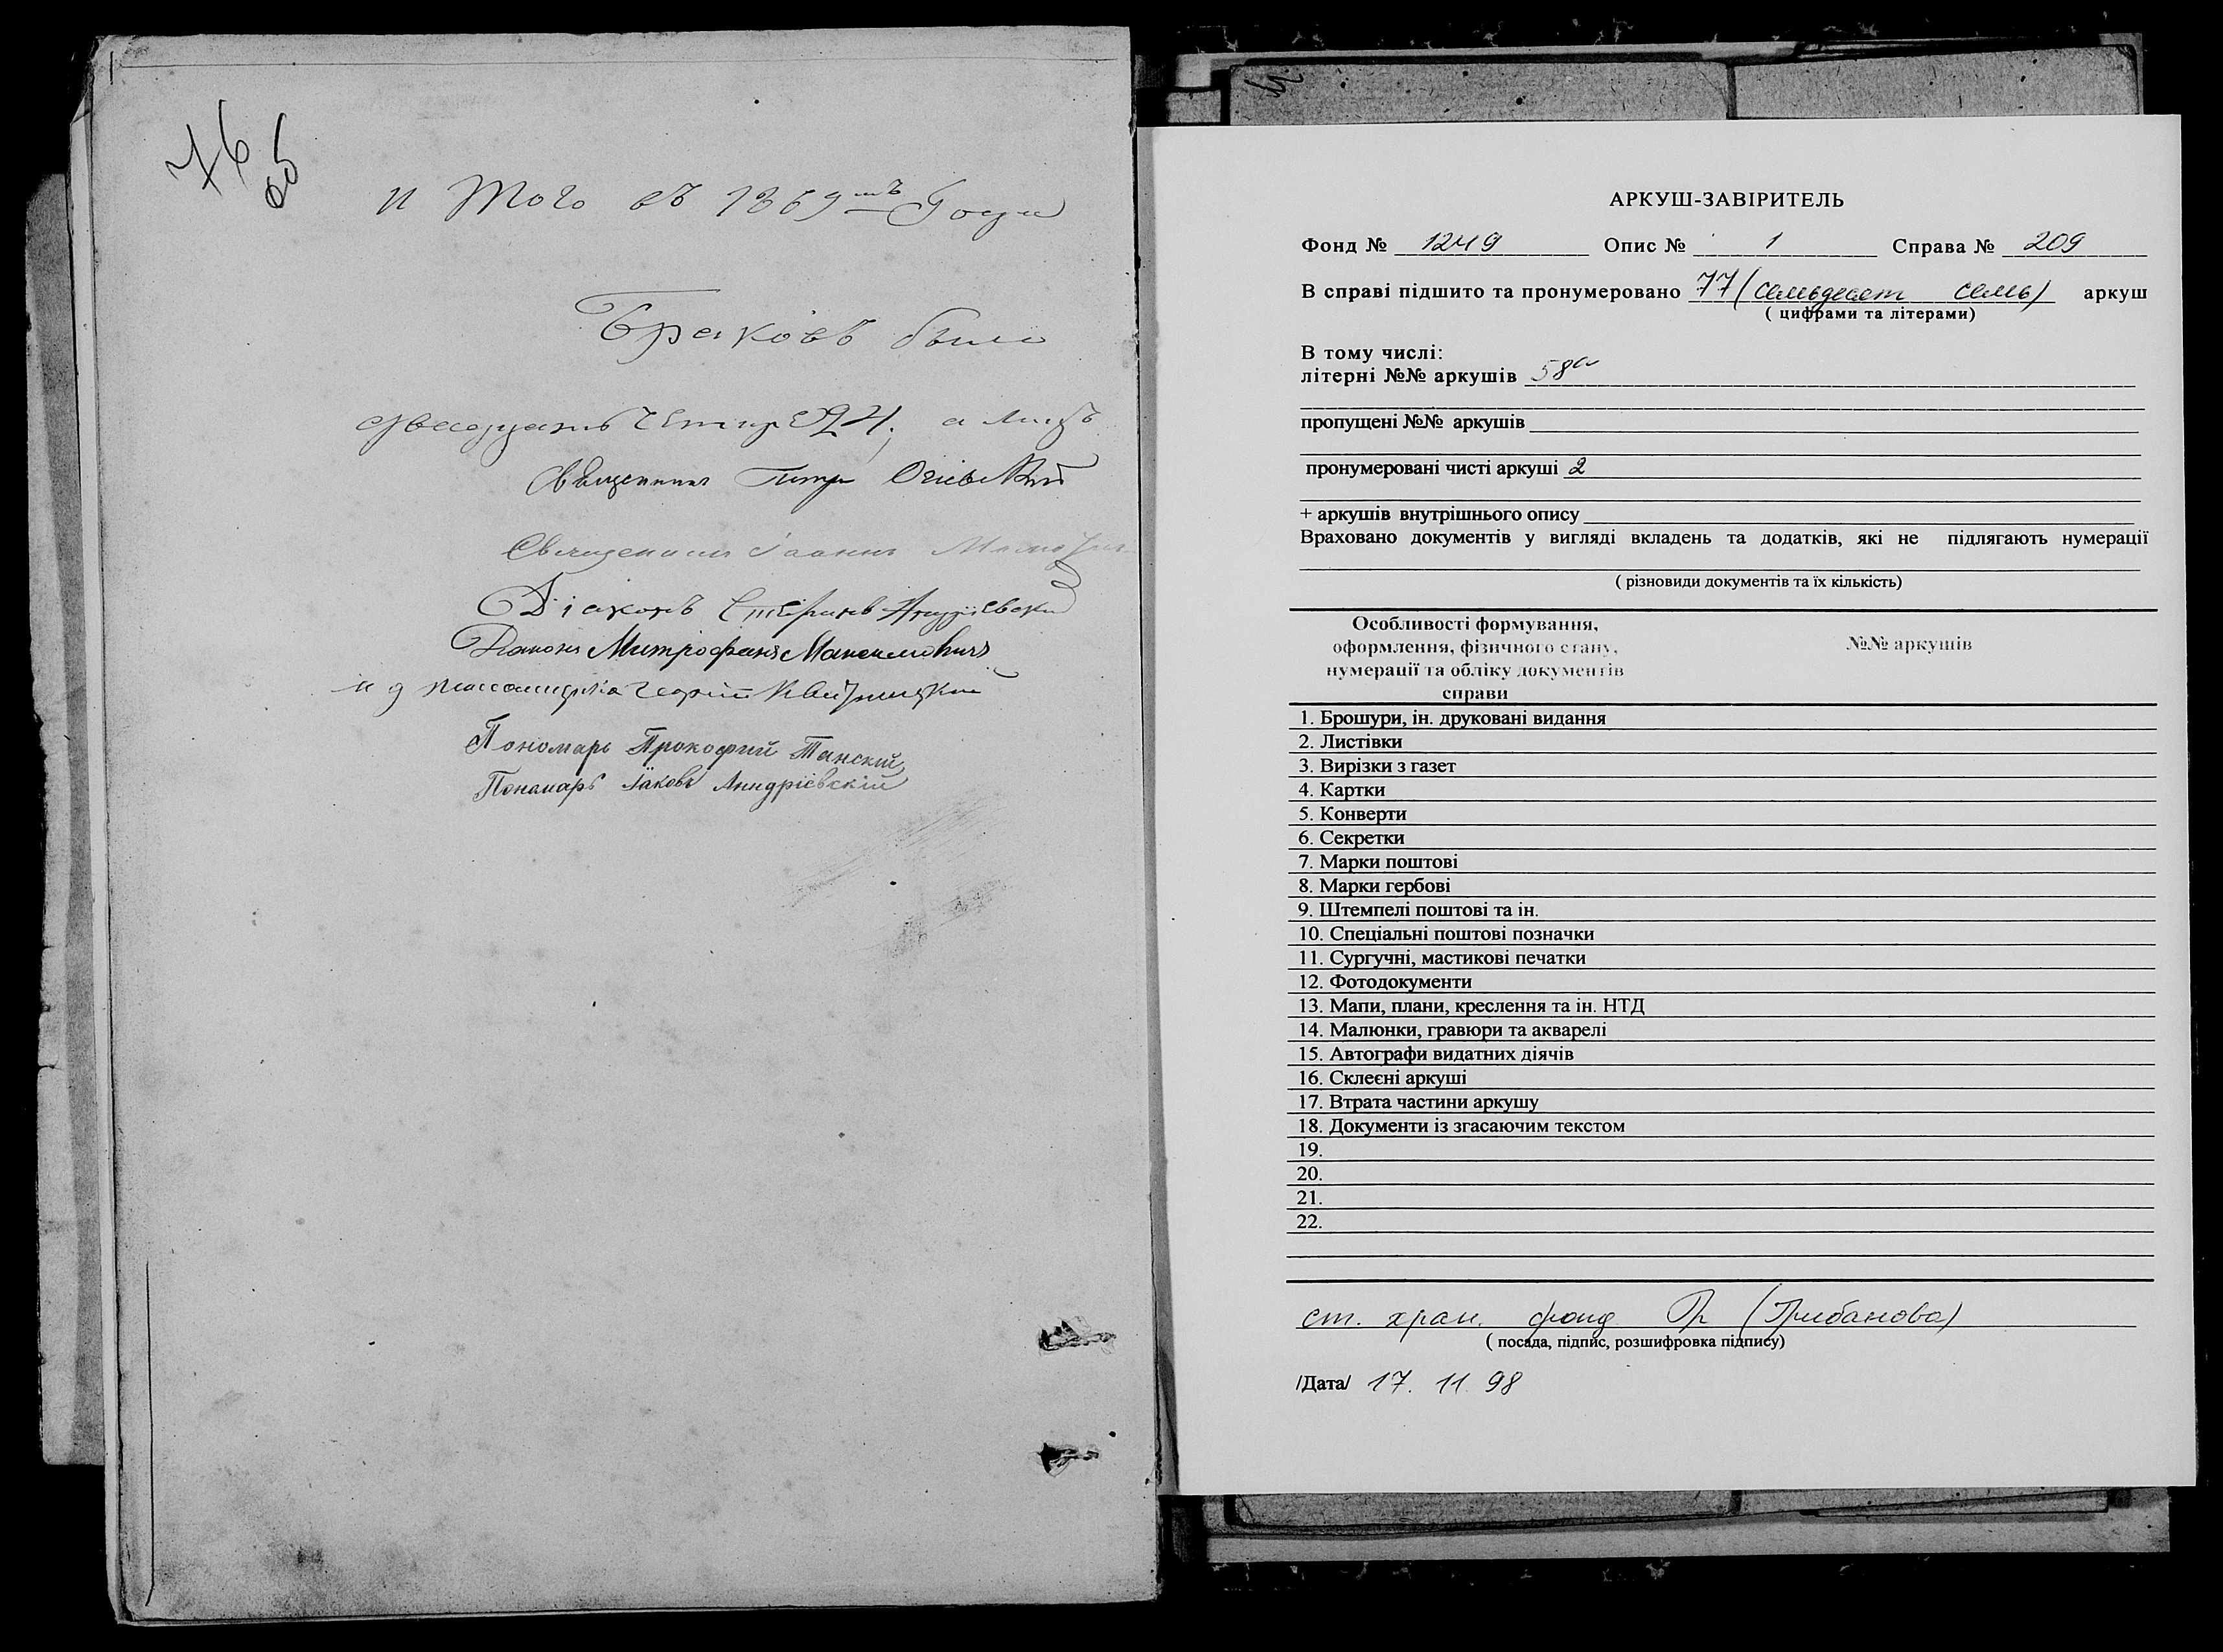 76 об
и Того въ 1869 мъ Году
Браковъ было
двадцать четыре 24, а лицъ
Священник Петр
Священник Іоаннъ
Діаконъ Стефанъ Андріевский
Діаконъ Митрофанъ Максимовичъ
и д псаломщика Георгій
Пономарь Прокофий Танскій
Пономарь Іаковъ Анндріевскій
АРКУШ-ЗАВІРИТЕЛЬ
Фонд № 1249 Опис № 1 Справа № 209
В справі підшито та пронумеровано 77 (семьдесят семь) аркуш
( цифрами та літерами)
В тому числі:
літерні №№ аркушів 58а
пропущені №№ аркушів
пронумеровані чисті аркуші 2
+ аркушів внутрішнього опису
Враховано документів у вигляді вкладень та додатків, які не підлягають нумерації
( різновиди документів та їх кількість)
Особливості формування,
оформлення, фізичного стану,
нумерації та обліку документів
справи
№№ аркушів
1. Брошури, ін. друковані видання
2. Листівки
3. Вирізки з газет
4. Картки
5. Конверти
6. Секретки
7. Марки поштові
8. Марки гербові
9. Штемпелі поштові та ін.
10. Спеціальні поштові позначки
11. Сургучні, мастикові печатки
12. Фотодокументи
13. Мапи, плани, креслення та ін. НТД
14. Малюнки, гравюри та акварелі
15. Автографи видатних діячів
16. Склеєні аркуші
17. Втрата частини аркушу
18. Документи із згасаючим текстом
19.
20.
21.
22.
ст. хран. фонд (Грибанова)
( посада, підпис, розшифровка підпису)
/Дата/ 17. 11. 98